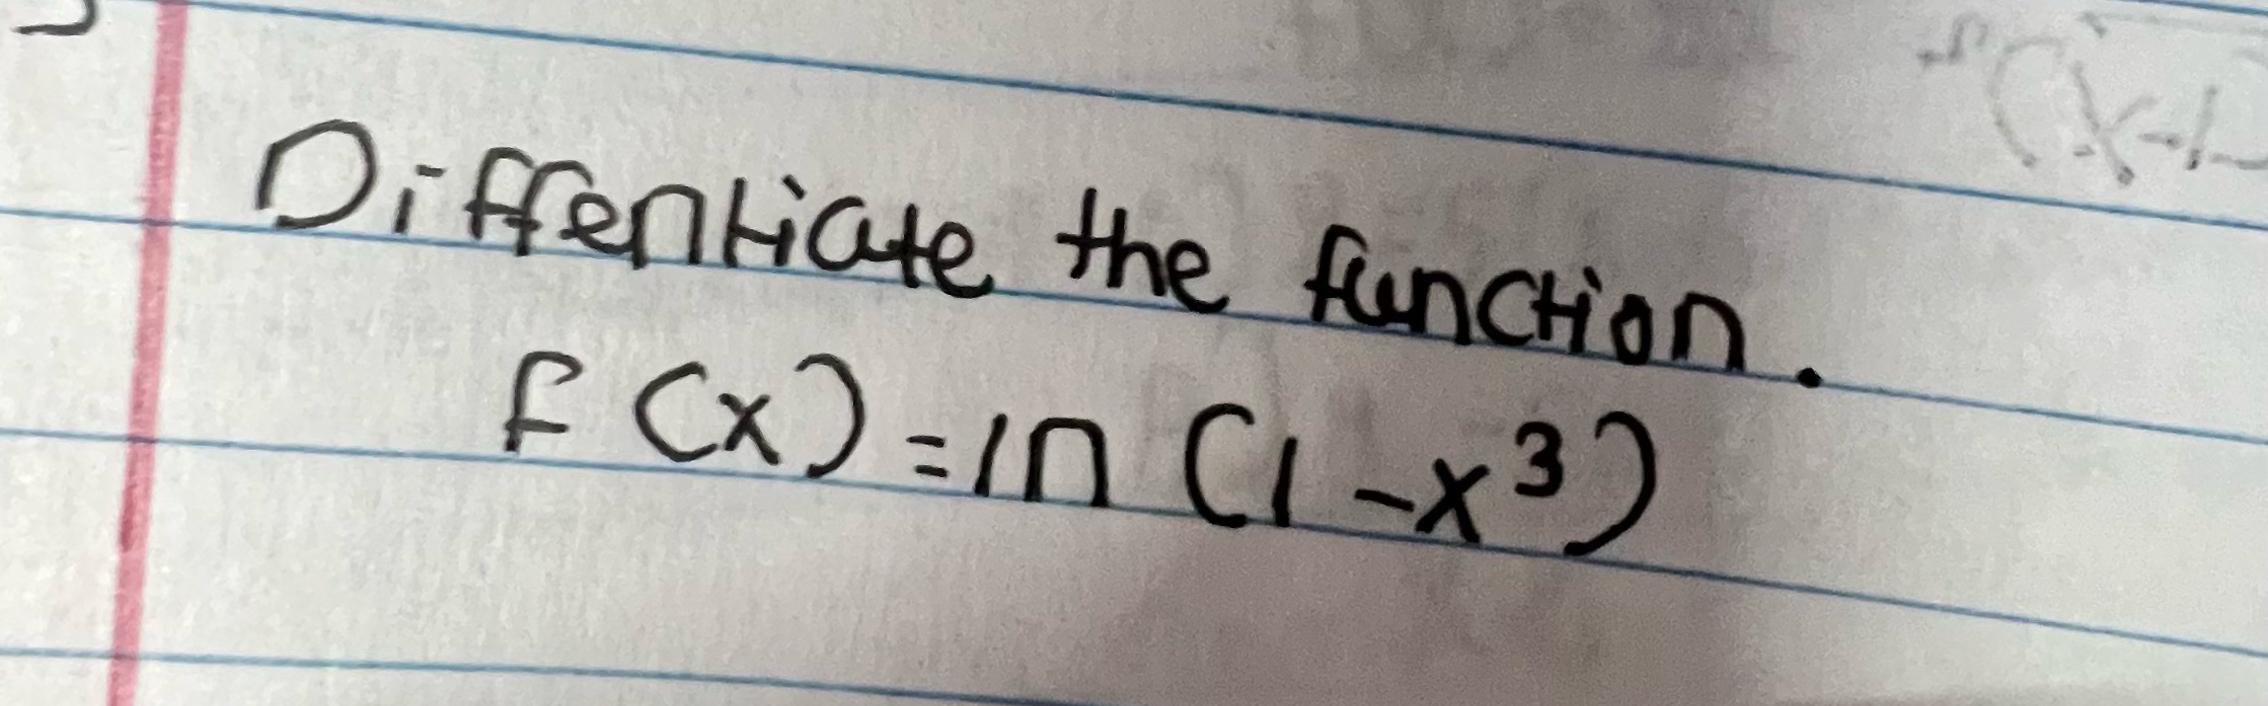 Diffentiate the function.
f(x)=ln(1-x³)
(x-1